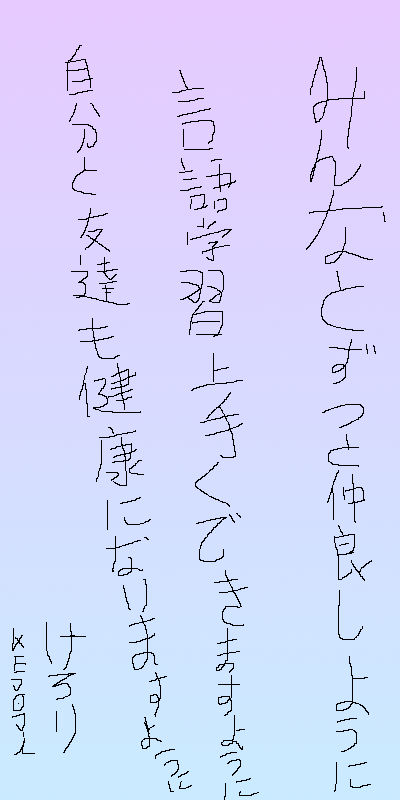 みんなとずっと仲良しように
言語学習上手くできますように
自分と友達も健康になりますように
けろり